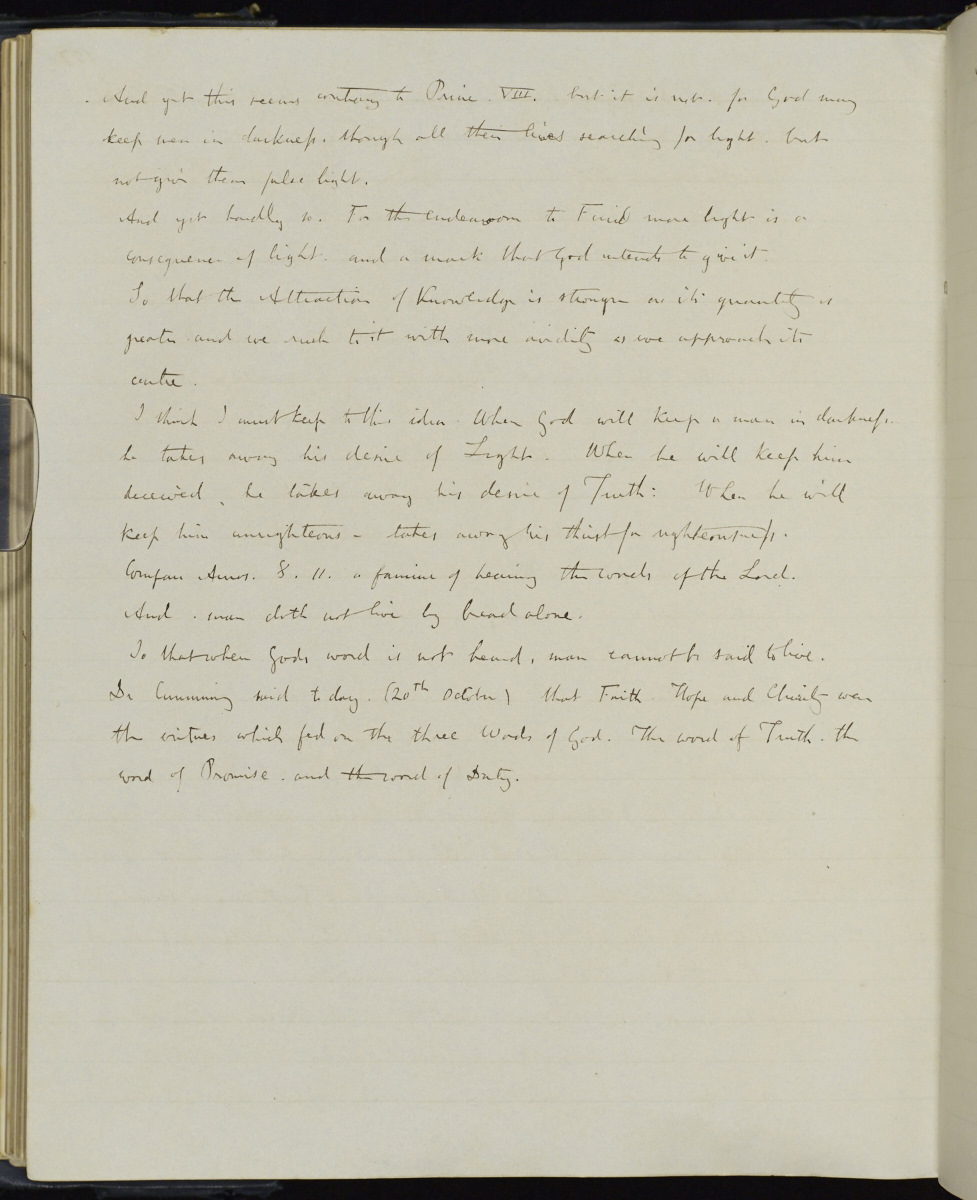 And yet this seems contrary to Princ. VIII. but it is not. for God may
keep men in darkness. though all their lives searching for light. but
not give them false light.
And yet hardly so. For the endeavour to Find more light is a
consequence of light. and a mark that God intends to give it.
So that the Attraction of Knowledge is stronger as its quantity is
greater and we rush to it with more avidity as we approach its
centre.
I think I must keep to this idea. When God will keep a man in darkness.
he takes away his desire of Light. When he will keep him
deceived, he takes away his desire of Truth: When he will
keep him unrighteous - takes away his thirst for righteousness.
Compare Amos. 8. 11. a famine of hearing the words of the Lord.
And. man doth not live by bread alone.
So that when Gods word is not heard, man cannot be said to live.
Dr Cumming said today. (20th October) that Faith Hope and Charity were
the virtues which fed on the three Words of God. The word of Truth. the
word of Promise. and the word of Duty.